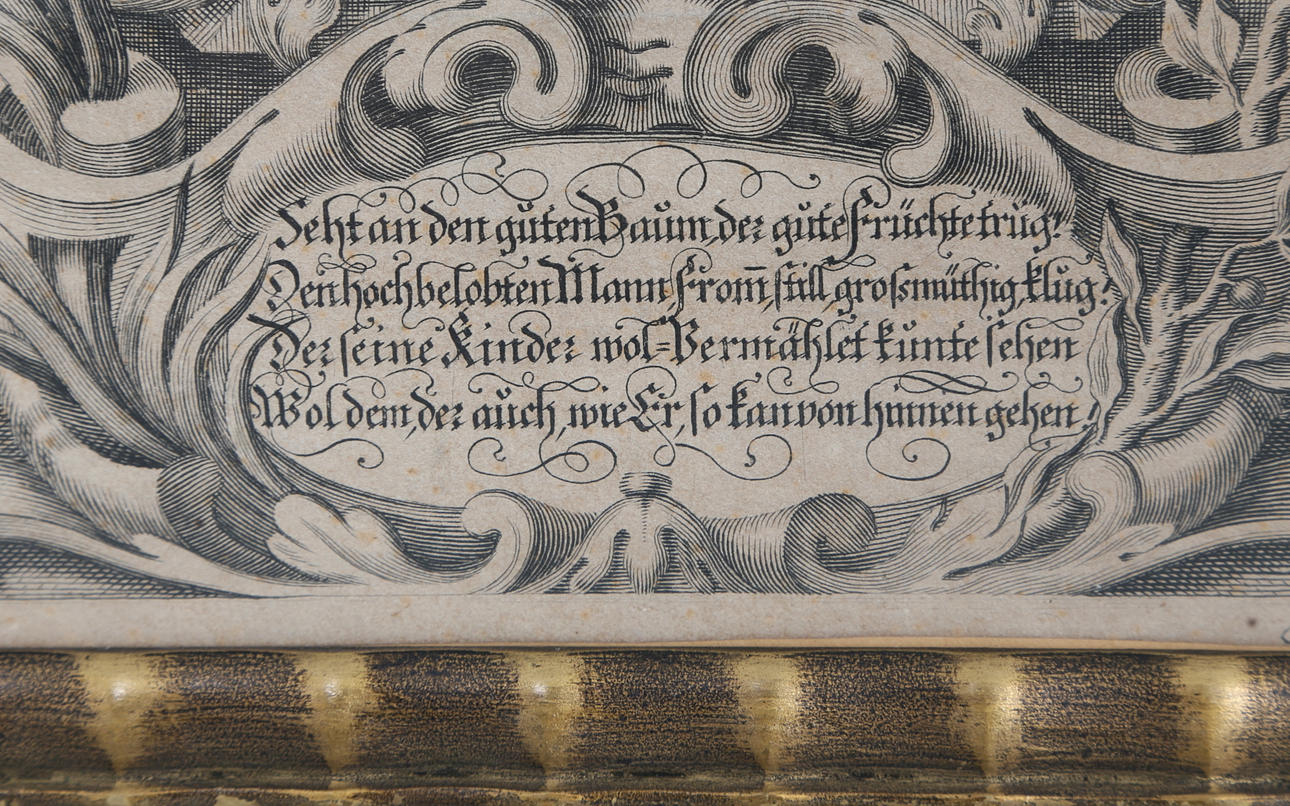 Seht an den guten Baum, der gute Früchte trug!
Den hochbelobten Mann from̄, still, grosmüthig, klug!
Der seine Kinder wol=Vermählet kunte sehen
Wol dem, der auch, wie Er, so kan von hinnen gehen!